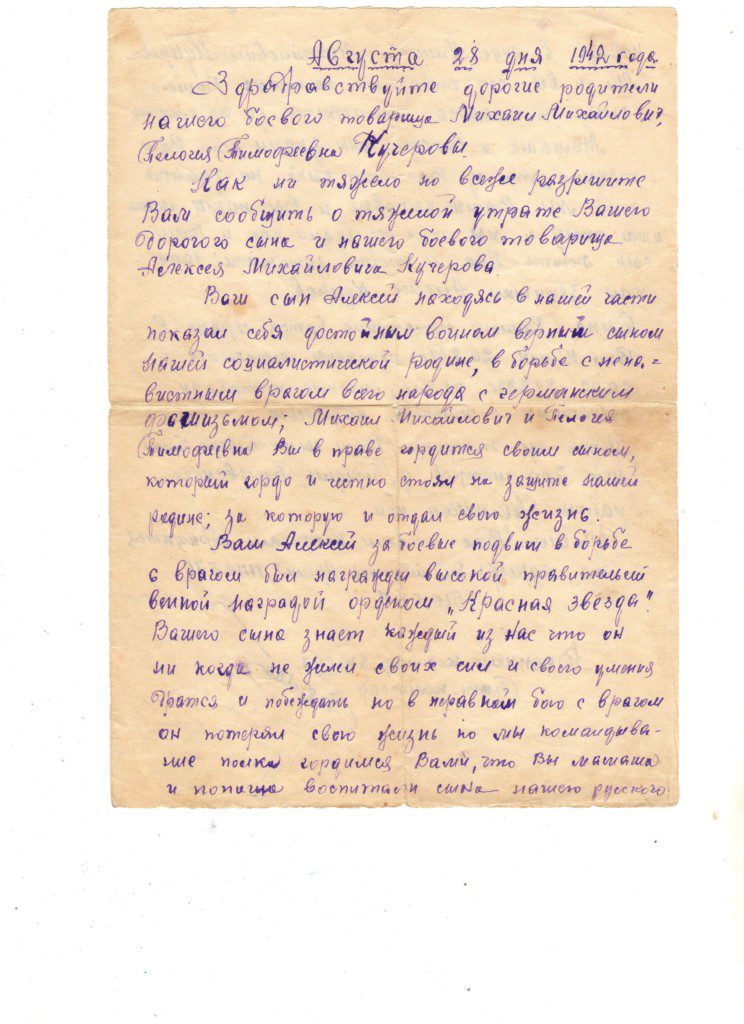 Августа 28 дня 1942 года.
Здравствуйте дорогие родители
нашего боевого товарища Михаил Михайлович,
Пелогия Тимофеевна Кучеровы.
Как ни тяжело но всеже разришите
Вам сообщить о тяжелой утрате Вашего
дорогого сына и нашего боевого товарища
Алексея Михайловича Кучерова.
Ваш сын Алексей находясь в нашей части
показал себя достойным воином верным сыном
нашей социалистической родине, в борьбе с нена-
вистным врагом всего народа с германским
фашизьмом; Михаил Михайлович и Пелогея
Тимофеевна Вы в праве гордится своим сыном,
который гордо и честно стоял на защите нашей
родине; за которую и отдал свою жизнь.
Ваш Алексей за боевые подвиги в борьбе
с врагом был награжден высокой правительст
венной наградой орденом „Красная звезда".
Вашего сына знает каждый из нас что он
ни когда не жилел своих сил и своего умения
дратся и побеждать но в неравном бою с врагом
он потерял свою жизнь но мы командыва-
ние полка гордимся Вами, что Вы мамаша
и попаша воспитали сына нашего русского